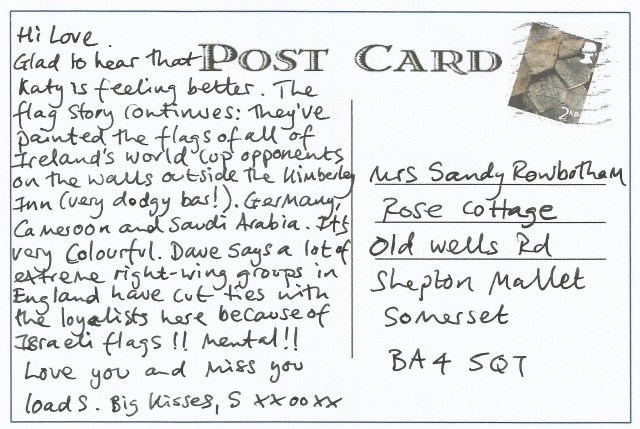 POST CARD
2ND
Hi Love
Glad to hear that
Katy is feeling better. The
flag story continues: They've
painted the flags of all of
Ireland's world cup opponents
on the walls outside the Kimberley
Inn (very dodgy bar!). Germany,
Cameroon and Saudi Arabia. It's
very colourful. Dave says a lot of
extreme right-wing groups in
England have cut ties with
the loyalists here because of
Israeli flags !! Mental!!
Love you and miss you
loads. Big Kisses, S xxooxx
Mrs Sandy Rowbotham
Rose Cottage
Old Wells Rd
Shepton Mallet
Somerset
BA4 5QT